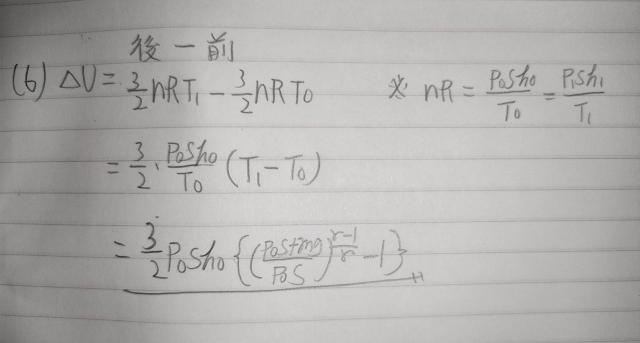 後－前
(6) ΔU = 3/2 nRT₁ − 3/2 nRT₀ ※ nR = P₀Sh₀/T₀ = P₁Sh₁/T₁
= 3/2 · P₀Sh₀/T₀ (T₁ − T₀)
= 3/2 P₀Sh₀ {((P₀S+mg)/P₀S)^((r−1)/r) − 1}